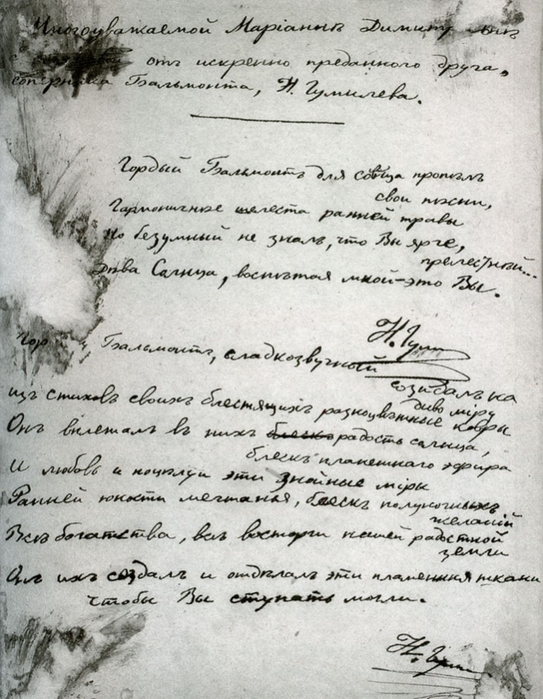 Многоуважаемой Маріаннѣ Димитріевнѣ
отъ искренно преданнаго друга,
соперника Бальмонта, Н. Гумилева.
Гордый Бальмонтъ для солнца пропѣлъ
свои пѣсни,
Гармоничнѣе шелеста ранней травы
Но безумный не зналъ, что Вы ярче,
прелестнѣй...
Дѣва Солнца, воспѣтая мной – это Вы.
Н. Гум
Гор Бальмонтъ, сладкозвучный
созидалъ на
диво міру
изъ стиховъ своихъ блестящихъ разноцвѣтные ковры
Онъ вплеталъ въ нихъ блескъ радость солнца,
блескъ планетнаго эфира
И любовь и поцѣлуи эти знойные міры
Ранней юности мечтанья, блескъ полуночныхъ
желаній
Всѣ богатства, всѣ восторги нашей радостной
земли
Онъ ихъ создалъ и отдѣлалъ эти пламенныя ткани
чтобы Вы ступать могли.
Н. Гум